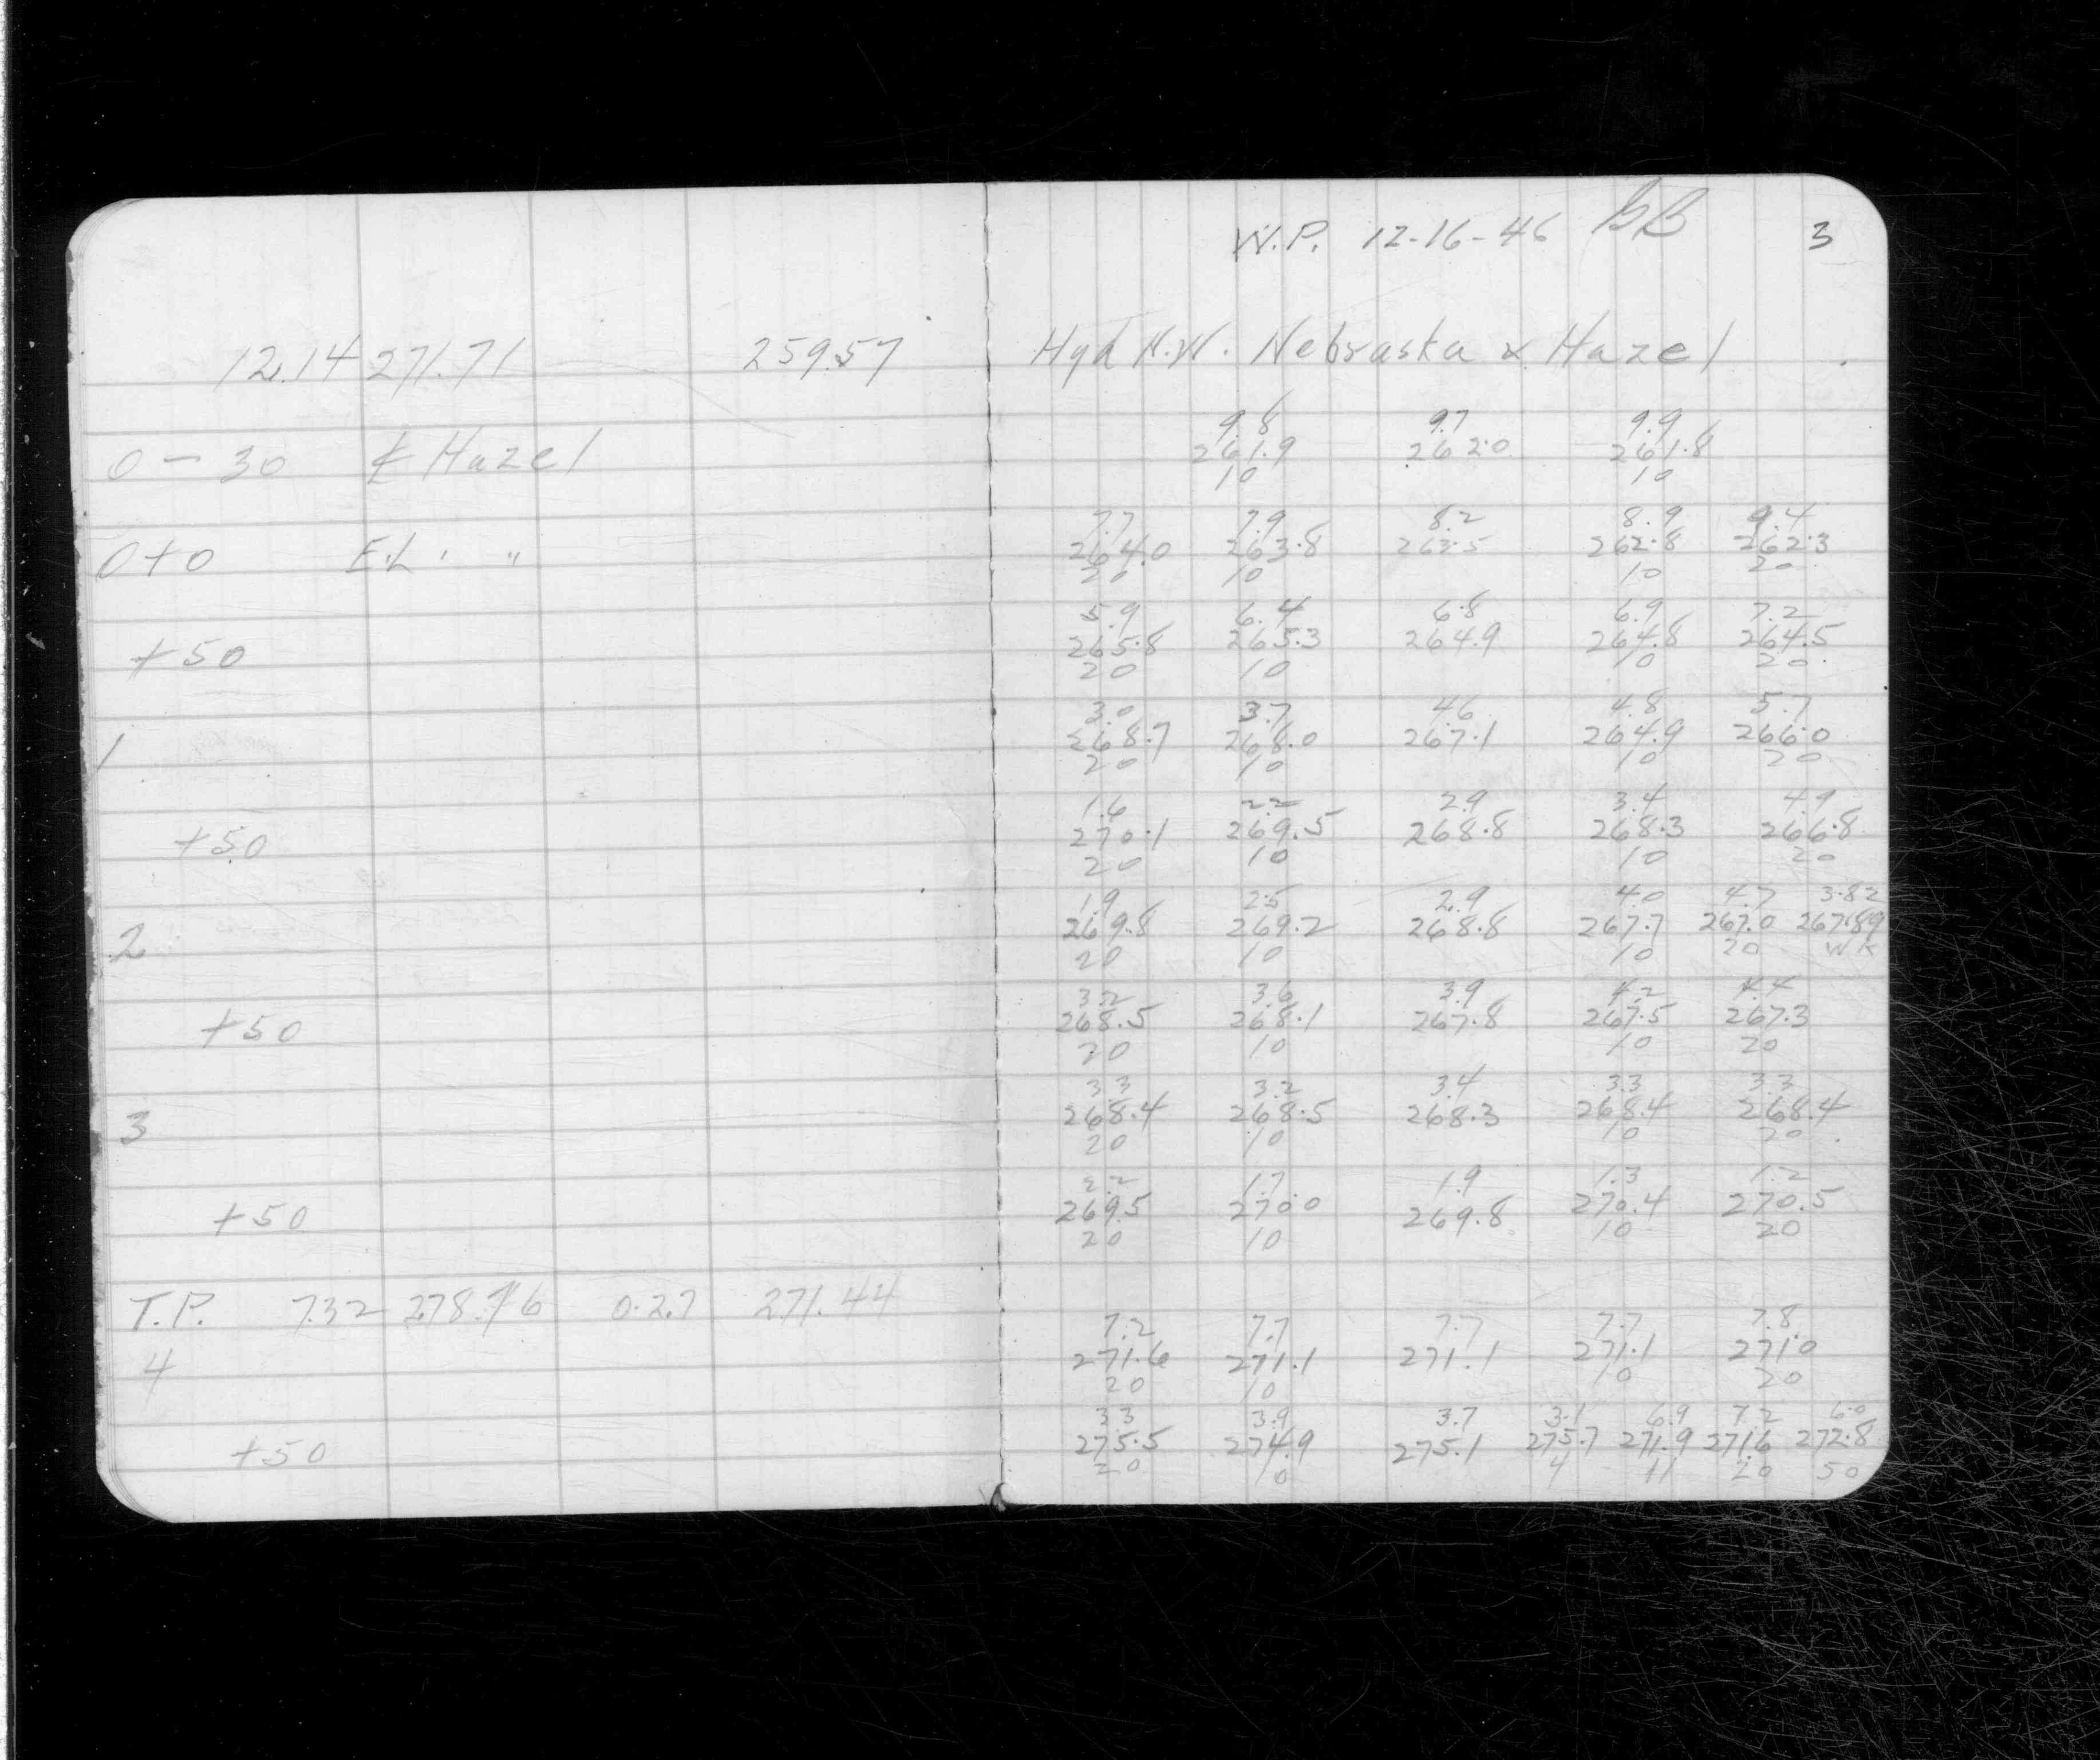 W.P. 12-16-46 GB 3
12.14 271.71 259.57 Hyd N.W. Nebraska & Hazel
9.8 9.7 9.9
0-30 ℄ Hazel 261.9 262.0 261.8
10 10
7.7 7.9 8.2 8.9 9.4
0+0 E.L. " 264.0 263.8 263.5 262.8 262.3
20 10 10 20
5.9 6.4 6.8 6.9 7.2
+50 265.8 265.3 264.9 264.8 264.5
20 10 10 20
3.0 3.7 4.6 4.8 5.7
1 268.7 268.0 267.1 264.9 266.0
20 10 10 20
1.6 2.2 2.9 3.4 4.9
+50 270.1 269.5 268.8 268.3 266.8
20 10 10 20
1.9 2.5 2.9 4.0 4.7 3.82
2 269.8 269.2 268.8 267.7 267.0 267.89
20 10 10 20 WK
3.2 3.6 3.9 4.2 4.4
+50 268.5 268.1 267.8 267.5 267.3
20 10 10 20
3.3 3.2 3.4 3.3 3.3
3 268.4 268.5 268.3 268.4 268.4
20 10 10 20
2.2 1.7 1.9 1.3 1.2
+50 269.5 270.0 269.8 270.4 270.5
20 10 10 20
T.P. 7.32 278.76 0.27 271.44
7.2 7.7 7.7 7.7 7.8
4 271.6 271.1 271.1 271.1 271.0
20 10 10 20
3.3 3.9 3.7 3.1 6.9 7.2 6.0
+50 275.5 274.9 275.1 275.7 271.9 271.6 272.8
20 10 4 11 20 50